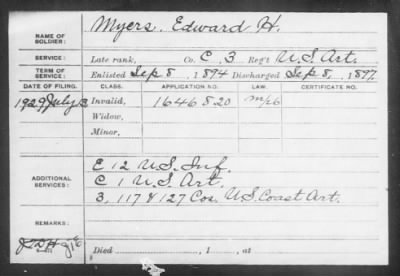 NAME OF SOLDIER: Myers, Edward H.
SERVICE: Late rank, Co. C. 3 Reg't U.S. Art.
TERM OF SERVICE: Enlisted Sep 8, 1894 Discharged Sep 8, 1897
DATE OF FILING. CLASS. APPLICATION NO. LAW. CERTIFICATE NO.
1929 July 13 Invalid, 1646820
Widow,
Minor,
E 12 U.S. Inf.
ADDITIONAL SERVICES: C 1 U.S. Art.
3, 117 & 127 Cos. U.S. Coast Art.
REMARKS:
Died , 1 , at